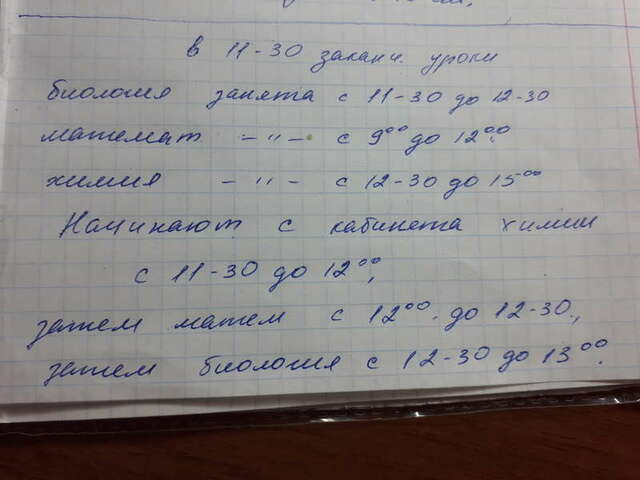 в 11-30 заканч. уроки
биология занята с 11-30 до 12-30
математ - " - с 9⁰⁰ до 12⁰⁰
химия - " - с 12-30 до 15⁰⁰
Начинают с кабинета химии
с 11-30 до 12⁰⁰,
затем матем с 12⁰⁰ до 12-30,
затем биология с 12-30 до 13⁰⁰.